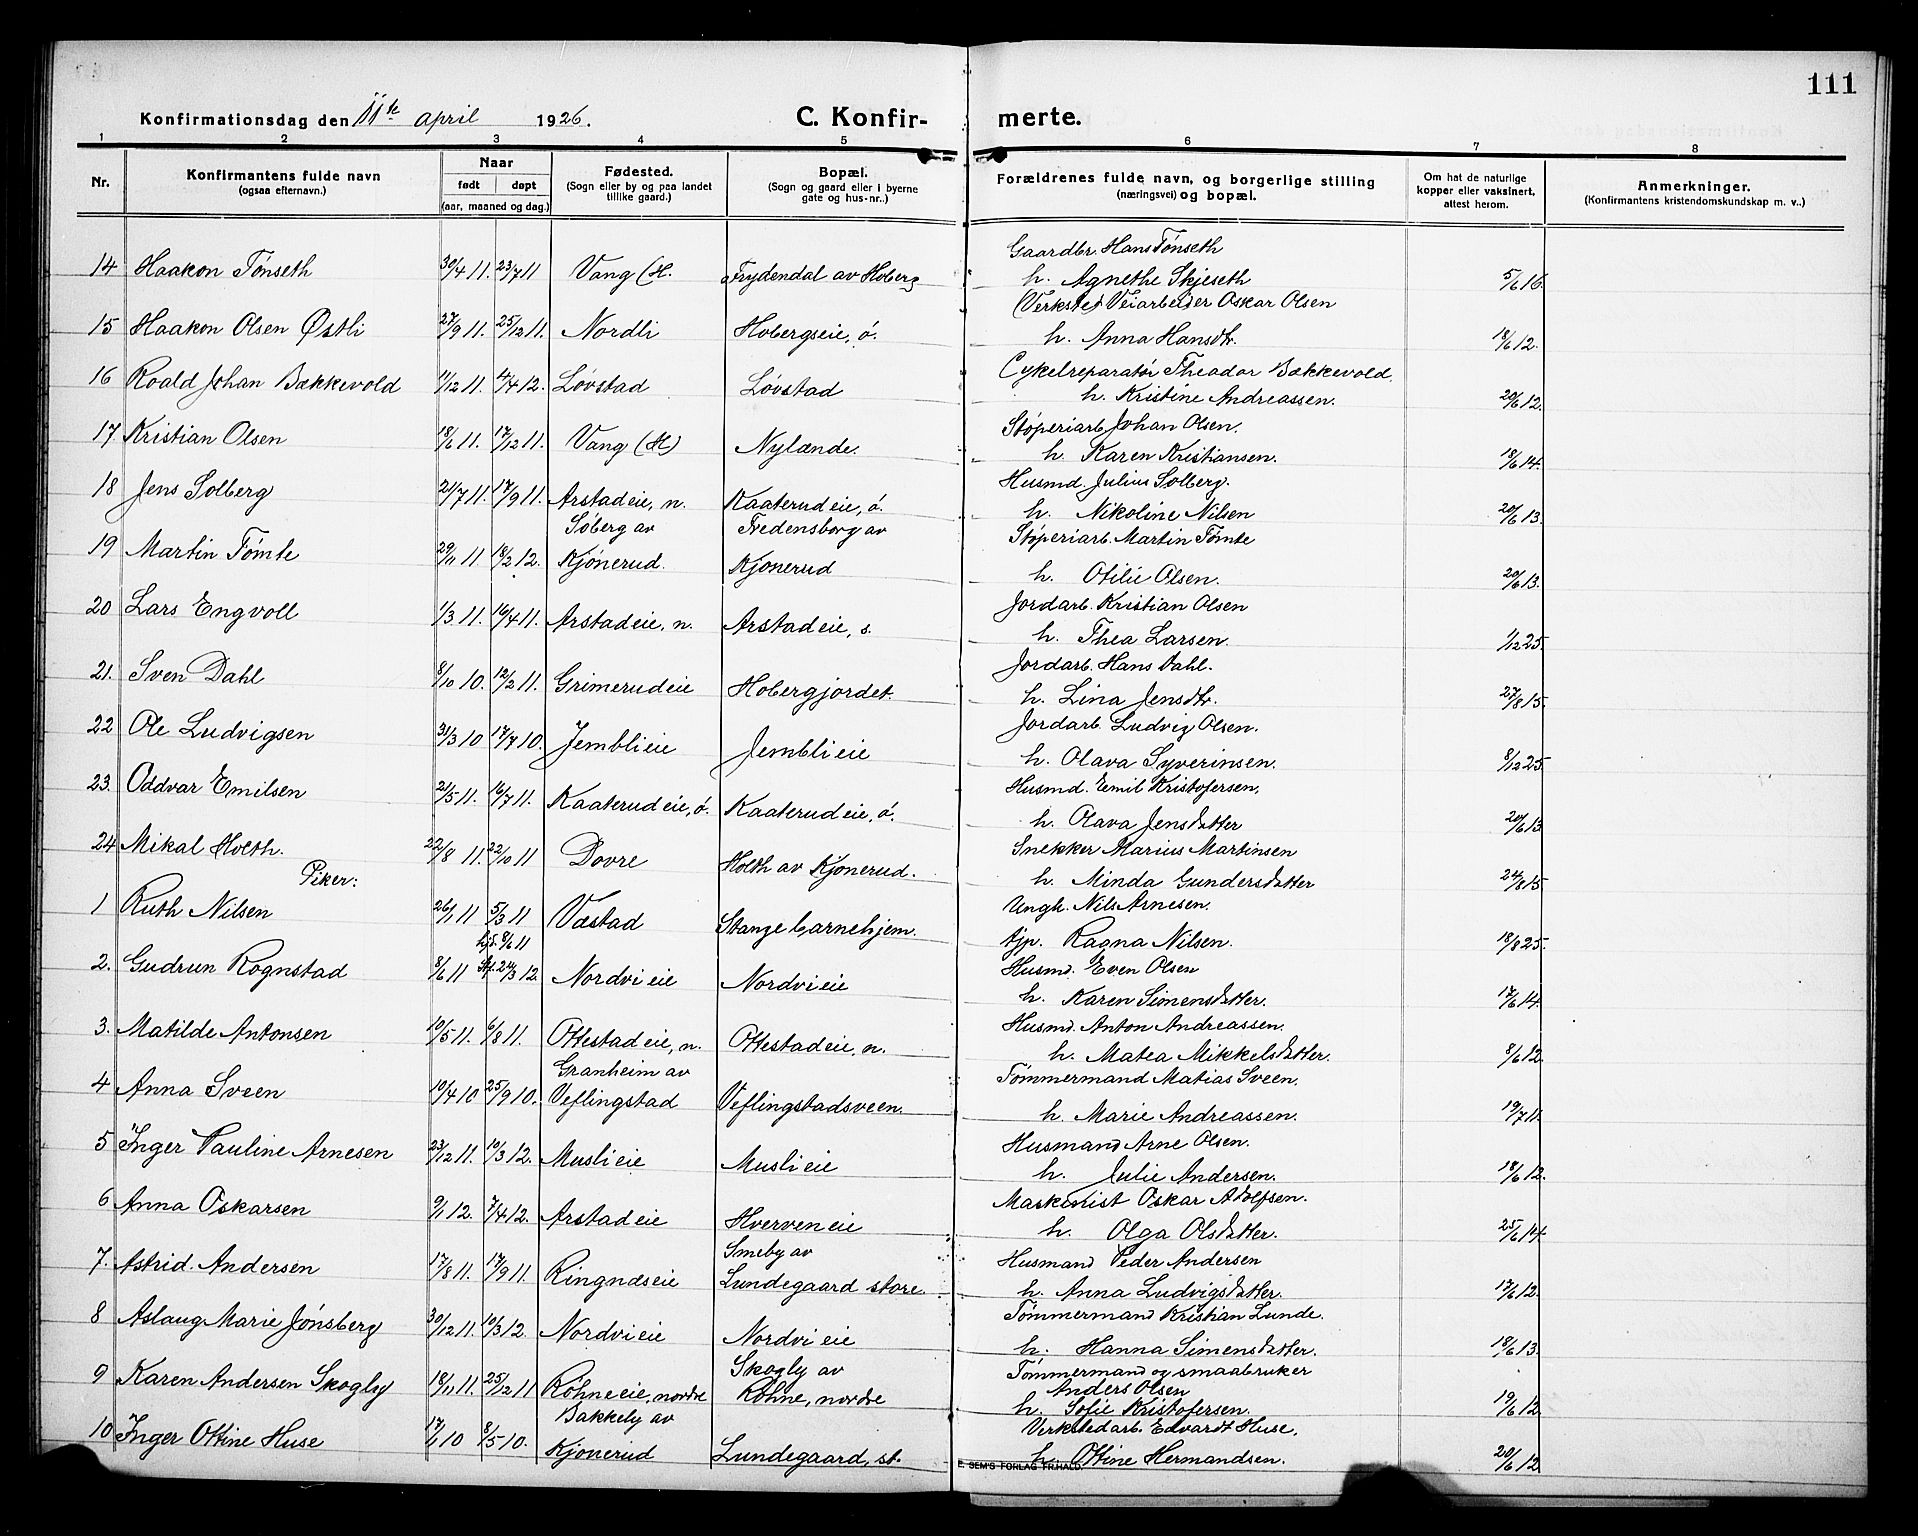 111
Konfirmationsdag den 11te april 1926. C. Konfirmerte.
1 2 3 4 5 6 7 8
Nr. Konfirmantens fulde navn (ogsaa efternavn.) Naar født døpt (aar, maaned og dag.) Fødested. (Sogn eller by og paa landet tillike gaard.) Bopæl. (Sogn og gaard eller i byerne gate og hus-nr..) Forældrenes fulde navn, og borgerlige stilling (næringsvei) og bopæl. Om hat de naturlige kopper eller vaksinert, attest herom. Anmerkninger. (Konfirmantens kristendomskundskap m. v..)
Gaardbr Hans Tønseth
14 Haakon Tønseth 30/4 11. 23/7 11 Vang (H. Frydendal av Hoberg h. Agnethe Skjeseth 5/6 16.
(Verksted) Veiarbeider Oskar Olsen
15 Haakon Olsen Østli 27/9 11. 25/12 11. Nordli Hobergseie, ø. h. Anna Hansdtr. 18/6 12.
16 Roald Johan Bækkevold 11/12 11. 4/4 12. Løvstad Løvstad Cykelreparatør Theodor Bækkevold.
h. Kristine Andreassen. 20/6 12.
17 Kristian Olsen 18/6 11. 17/12 11. Vang (H) Nylænde. Støperiarb. Johan Olsen.
h. Karen Kristiansen. 18/6 14.
18 Jens Solberg 21/7 11. 17/9 11. Arstadeie, n. Kaaterudeie, ø. Husmd. Julius Solberg.
h. Nikoline Nilsen 20/6 13.
Søberg av Fredensborg av
19 Martin Tømte 29/11 11. 18/2 12. Kjønerud. Kjønerud Støperiarb. Martin Tømte
h. Otilie Olsen. 20/6 13.
20 Lars Engvoll 1/3 11. 16/4 11. Arstadeie, n. Arstadeie, s. Jordarb. Kristian Olsen
h. Thea Larsen. 1/12 25.
21. Sven Dahl 8/10 10. 12/2 11. Grimerudeie Hobergjordet. Jordarb. Hans Dahl.
h. Lina Jensdtr. 27/8 15.
22 Ole Ludvigsen 31/3 10 17/7 10. Jemblieie Jemblieie Jordarb. Ludvig Olsen.
h. Olava Syverinsen. 8/12 25.
23. Oddvar Emilsen 21/5 11. 16/7 11. Kaaterudeie, ø. Kaaterudeie, ø. Husmd. Emil Kristofersen,
h. Olava Jensdatter 20/6 13
24 Mikal Holth. 22/8 11. 22/10 11 Dovre Holth av Kjønerud. Snekker Marius Martinsen
h. Minda Gundersdatter 24/8 15.
Piker:
1 Ruth Nilsen 26/1 11 5/3 11 Væstad Stange barnehjem. Ungk. Nils Arnesen.
tjp. Ragna Nilsen. 18/8 25.
hjd. 8/6 11
2. Gudrun Rognstad 8/6 11 Stf. 24/3 12. Nordvieie Nordvieie Husmd. Even Olsen
h. Karen Simensdatter. 17/6 14.
3. Matilde Antonsen 10/5 11. 6/8 11. Ottestadeie, n. Ottestadeie, n. Husmd. Anton Andreassen.
h. Matea Mikkelsdatter. 8/6 12.
Granheim av
4 Anna Sveen 10/4 10 25/9 10. Veflingstad Veflingstadsveen. Tømmermand Matias Sveen.
h. Marie Andreassen. 19/7 11.
5 Inger Pauline Arnesen 23/12 11. 10/3 12. Muslieie Muslieie Husmand Arne Olsen.
h. Julie Andersen. 18/6 12.
6 Anna Oskarsen 9/1 12. 7/4 12. Arstadeie Hverveneie Maskinist Oskar Adolfsen.
h. Olga Olsdatter. 25/6 14
Smeby av
7. Astrid Andersen 17/8 11. 17/9 11. Ringnæseie Lundegaard store. Husmand Peder Andersen
h. Anna Ludvigsdatter. 17/6 12.
8 Aslaug Marie Jønsberg 30/12 11. 10/3 12 Nordvieie Nordvieie Tømmermand Kristian Lunde.
h. Hanna Simensdatter. 18/6 13.
Skogly av Tømmermand og smaabruker
9 Karen Andersen Skogly 18/11 11. 25/12 11 Røhneeie, nordre Røhne, nordre Anders Olsen
h. Sofie Kristofersen. 19/6 12.
Bakkely av
10 Inger Ottine Huse 17/1 10 8/5 10. Kjønerud Lundegaard, st. Verkstedarb. Edvardt Huse.
h. Ottine Hermandsen. 20/6 12
E. SEM'S FORLAG FR.HALD.